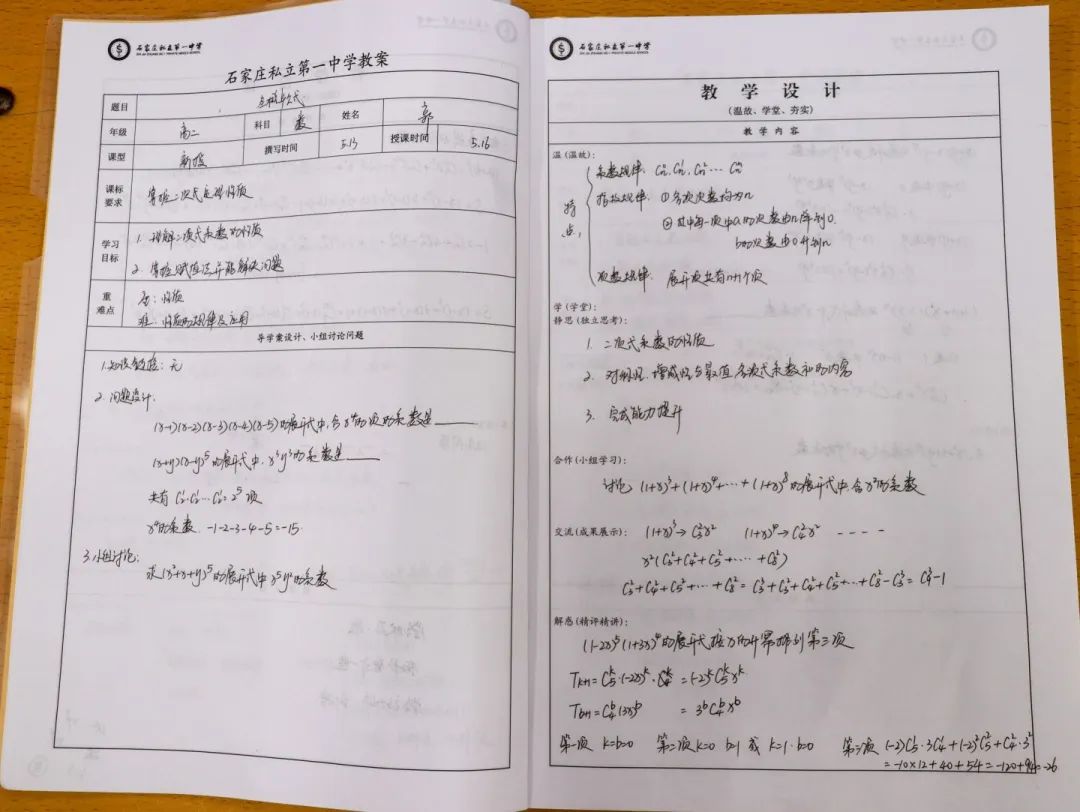 石家庄私立第一中学
石家庄私立第一中学教案
题目 二项式
年级 高二 科目 数 姓名 郭
课型 新授 撰写时间 5.13 授课时间 5.16
课标要求 掌握二次式定理性质
学习目标 1. 理解二次式系数的性质
2. 掌握赋值法并能解决问题
重难点 重:性质
难:性质的规律及应用
导学案设计、小组讨论问题
1.知识链接:无
2.问题设计:
(x-1)(x-2)(x-3)(x-4)(x-5)的展开式中,含x⁴的项的系数是______
(x+y)(x-y)⁵的展开式中,x³y³的系数是______
共有 C₂¹·C₂¹…C₂¹=2⁵项
x⁴的系数. -1-2-3-4-5=-15.
3.小组讨论:
求(x²+x+y)⁵的展开式中x⁵y²的系数
石家庄私立第一中学
教学设计
(温故、学堂、夯实)
教学内容
温(温故):
特点:
系数规律:Cₙ⁰,Cₙ¹,Cₙ²…Cₙⁿ
指数规律:①各项次数均为n
②其中每一项中a的次数由n降到0.
b的次数由0升到n
项数规律:展开项共有n+1个项
学(学堂):
静思(独立思考):
1. 二次式系数的性质
2. 对称性、增减性与最值,各项式系数和的内容
3. 完成能力提升
合作(小组学习):
讨论 (1+x)³+(1+x)⁴+…+(1+x)⁸的展开式中,含x²的系数
交流(成果展示): (1+x)³→C₃²x² (1+x)⁴→C₄²x² - - - -
x²(C₃²+C₄²+C₅²+…+C₈²)
C₃²+C₄²+C₅²+…+C₈²=C₃³+C₃²+C₄²+C₅²+…+C₈²-C₃³=C₉³-1
解惑(精评精讲):
(1-2x)⁵(1+3x)⁴的展开式,按x的升幂排到第三项
Tₖ₊₁=C₅ᵏ·(-2x)ᵏ =(-2)ᵏC₅ᵏxᵏ
T_b+1=C₄ᵇ(3x)ᵇ =3ᵇC₄ᵇxᵇ
第一项 k=b=0 第二项k=0 b=1 或 k=1·b=0 第三项 (-2)C₅¹·3C₄¹+(-2)²C₅²+C₄²·3²
=-10×12+40+54=-120+94=-26